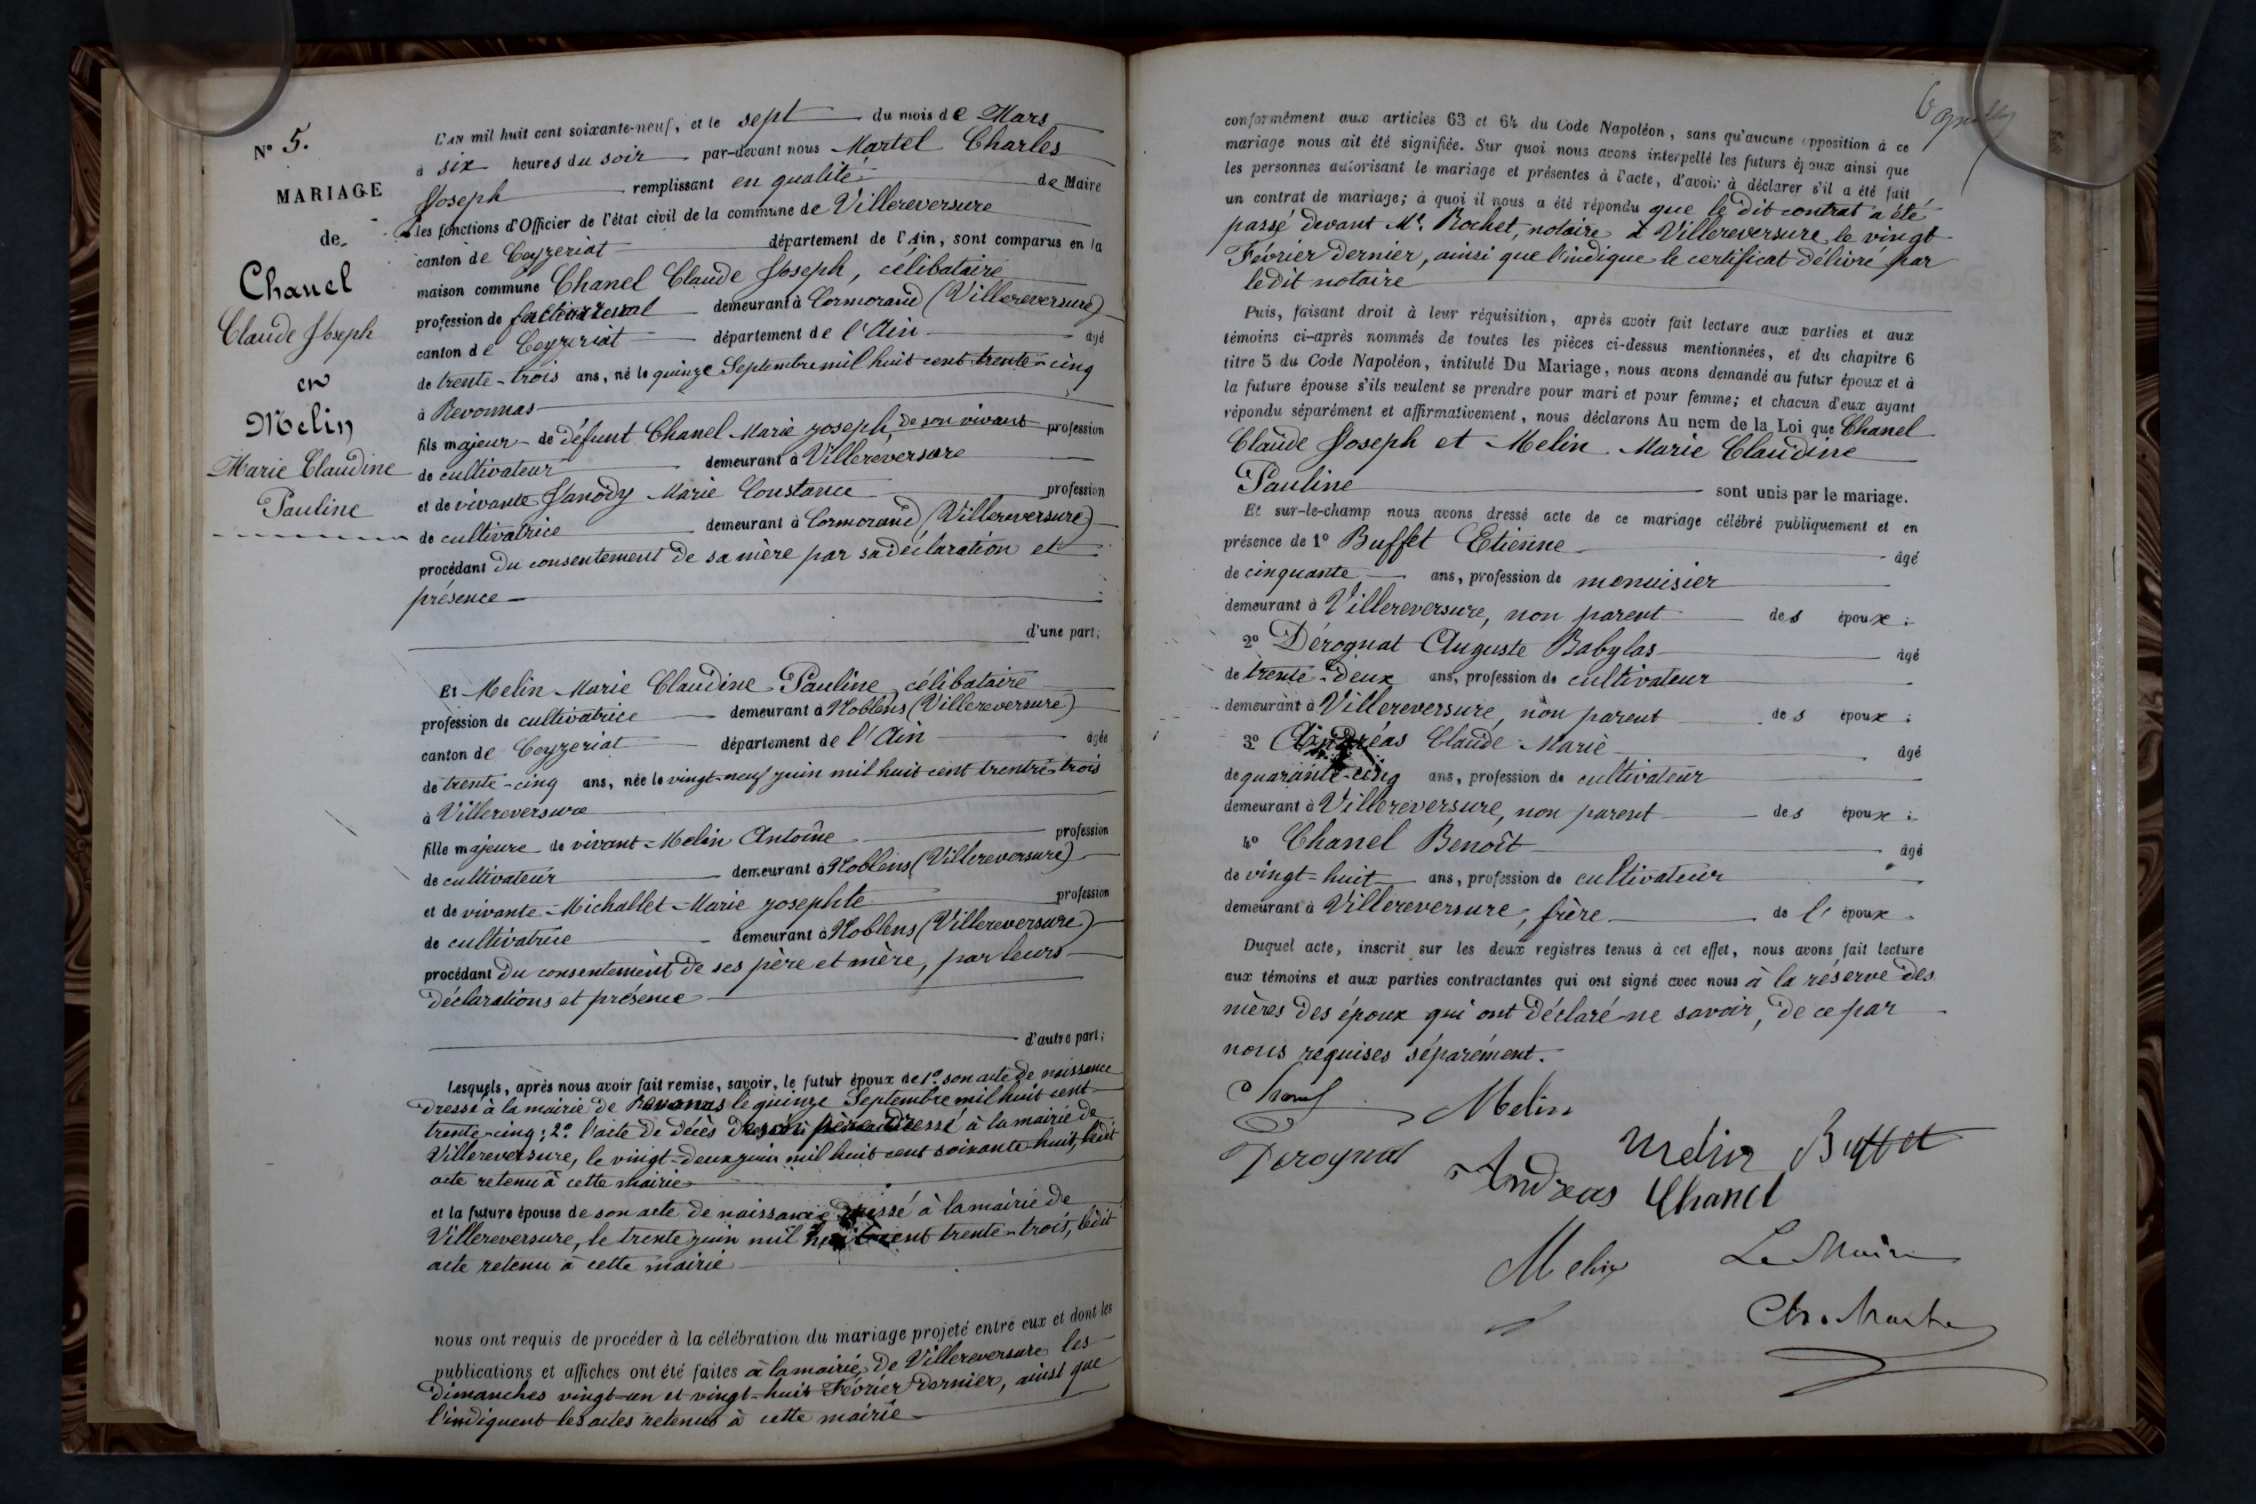 N° 5.
MARIAGE
de
Chanel
Claude Joseph
et
Melin
Marie Claudine
Pauline
L'an mil huit cent soixante-neuf, et le sept du mois de Mars
à six heures du soir par-devant nous Martel Charles
Joseph remplissant en qualité de Maire
les fonctions d'Officier de l'état civil de la commune de Villereversure
canton de Ceyzeriat département de l'Ain, sont comparus en la
maison commune Chanel Claude Joseph, célibataire
profession de facteur rural demeurant à Cormorand (Villereversure)
canton de Ceyzeriat département de l'Ain âgé
de trente-trois ans, né le quinze Septembre mil huit cent trente-cinq
à Revonnas
fils majeur de défunt Chanel Marie Joseph, de son vivant profession
de cultivateur demeurant à Villereversure
et de vivante Janody Marie Constance profession
de cultivatrice demeurant à Cormorand (Villereversure)
procédant du consentement de sa mère par sa déclaration et
présence
d'une part;
Et Melin Marie Claudine Pauline, célibataire
profession de cultivatrice demeurant à Noblens (Villereversure)
canton de Ceyzeriat département de l'Ain âgée
de trente-cinq ans, née le vingt-neuf juin mil huit cent trente-trois
à Villereversure
fille majeure de vivant Melin Antoine profession
de cultivateur demeurant à Noblens (Villereversure)
et de vivante Michallet Marie Josephte profession
de cultivatrice demeurant à Noblens (Villereversure)
procédant du consentement de ses père et mère, par leurs
déclarations et présence
d'autre part;
Lesquels, après nous avoir fait remise, savoir, le futur époux de 1° son acte de naissance
dressé à la mairie de Revonnas le quinze Septembre mil huit cent
trente-cinq; 2° l'acte de décès de son père dressé à la mairie de
Villereversure, le vingt-deux juin mil huit cent soixante huit, ledit
acte retenu à cette mairie
et la future épouse de son acte de naissance dressé à la mairie de
Villereversure, le trente juin mil huit cent trente-trois, ledit
acte retenu à cette mairie
nous ont requis de procéder à la célébration du mariage projeté entre eux et dont les
publications et affiches ont été faites à la mairie de Villereversure les
dimanches vingt-un et vingt-huit Février dernier, ainsi que
l'indiquent les actes retenus à cette mairie
conformément aux articles 63 et 64 du Code Napoléon, sans qu'aucune opposition à ce
mariage nous ait été signifiée. Sur quoi nous avons interpellé les futurs époux ainsi que
les personnes autorisant le mariage et présentes à l'acte, d'avoir à déclarer s'il a été fait
un contrat de mariage; à quoi il nous a été répondu que le dit contrat a été
passé devant Me. Rochet, notaire à Villereversure le vingt
Février dernier, ainsi que l'indique le certificat délivré par
ledit notaire
Puis, faisant droit à leur réquisition, après avoir fait lecture aux parties et aux
témoins ci-après nommés de toutes les pièces ci-dessus mentionnées, et du chapitre 6
titre 5 du Code Napoléon, intitulé Du Mariage, nous avons demandé au futur époux et à
la future épouse s'ils veulent se prendre pour mari et pour femme; et chacun d'eux ayant
répondu séparément et affirmativement, nous déclarons Au nom de la Loi que Chanel
Claude Joseph et Melin Marie Claudine
Pauline sont unis par le mariage.
Et sur-le-champ nous avons dressé acte de ce mariage célébré publiquement et en
présence de 1° Buffet Etienne âgé
de cinquante ans, profession de menuisier
demeurant à Villereversure, non parent des époux;
2° Dérognat Auguste Babylas âgé
de trente-deux ans, profession de cultivateur
demeurant à Villereversure, non parent des époux;
3° Andréas Claude Marie âgé
de quarante-cinq ans, profession de cultivateur
demeurant à Villereversure, non parent des époux;
4° Chanel Benoît âgé
de vingt-huit ans, profession de cultivateur
demeurant à Villereversure, frère de l'époux
Duquel acte, inscrit sur les deux registres tenus à cet effet, nous avons fait lecture
aux témoins et aux parties contractantes qui ont signé avec nous à la réserve des
mères des époux qui ont déclaré ne savoir, de ce par
nous requises séparément.
Chanel Melin
Derognat Melin Buffet
Andreas Chanel
Melin Le Maire
Ch. Martel